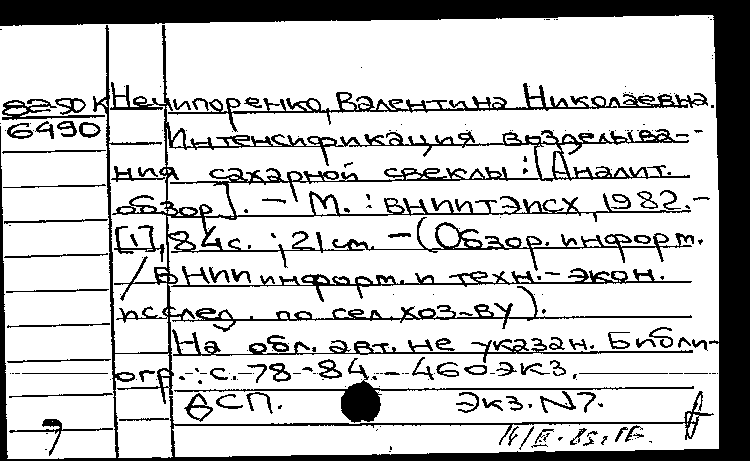 82-50К Нечипоренко, Валентина Николаевна.
6490 Интенсификация возделыва-
ния сахарной свеклы : [Аналит.
обзор]. - М. : ВНИИТЭИСХ, 1982.-
[1], 84 с. ; 21 см. - (Обзор. информ.
/ ВНИИ информ. и техн.-экон.
исслед. по сел. хоз-ву).
На обл. авт. не указан. Библи-
огр.: с. 78-84. - 460 экз.
ВСП. Экз. N7.